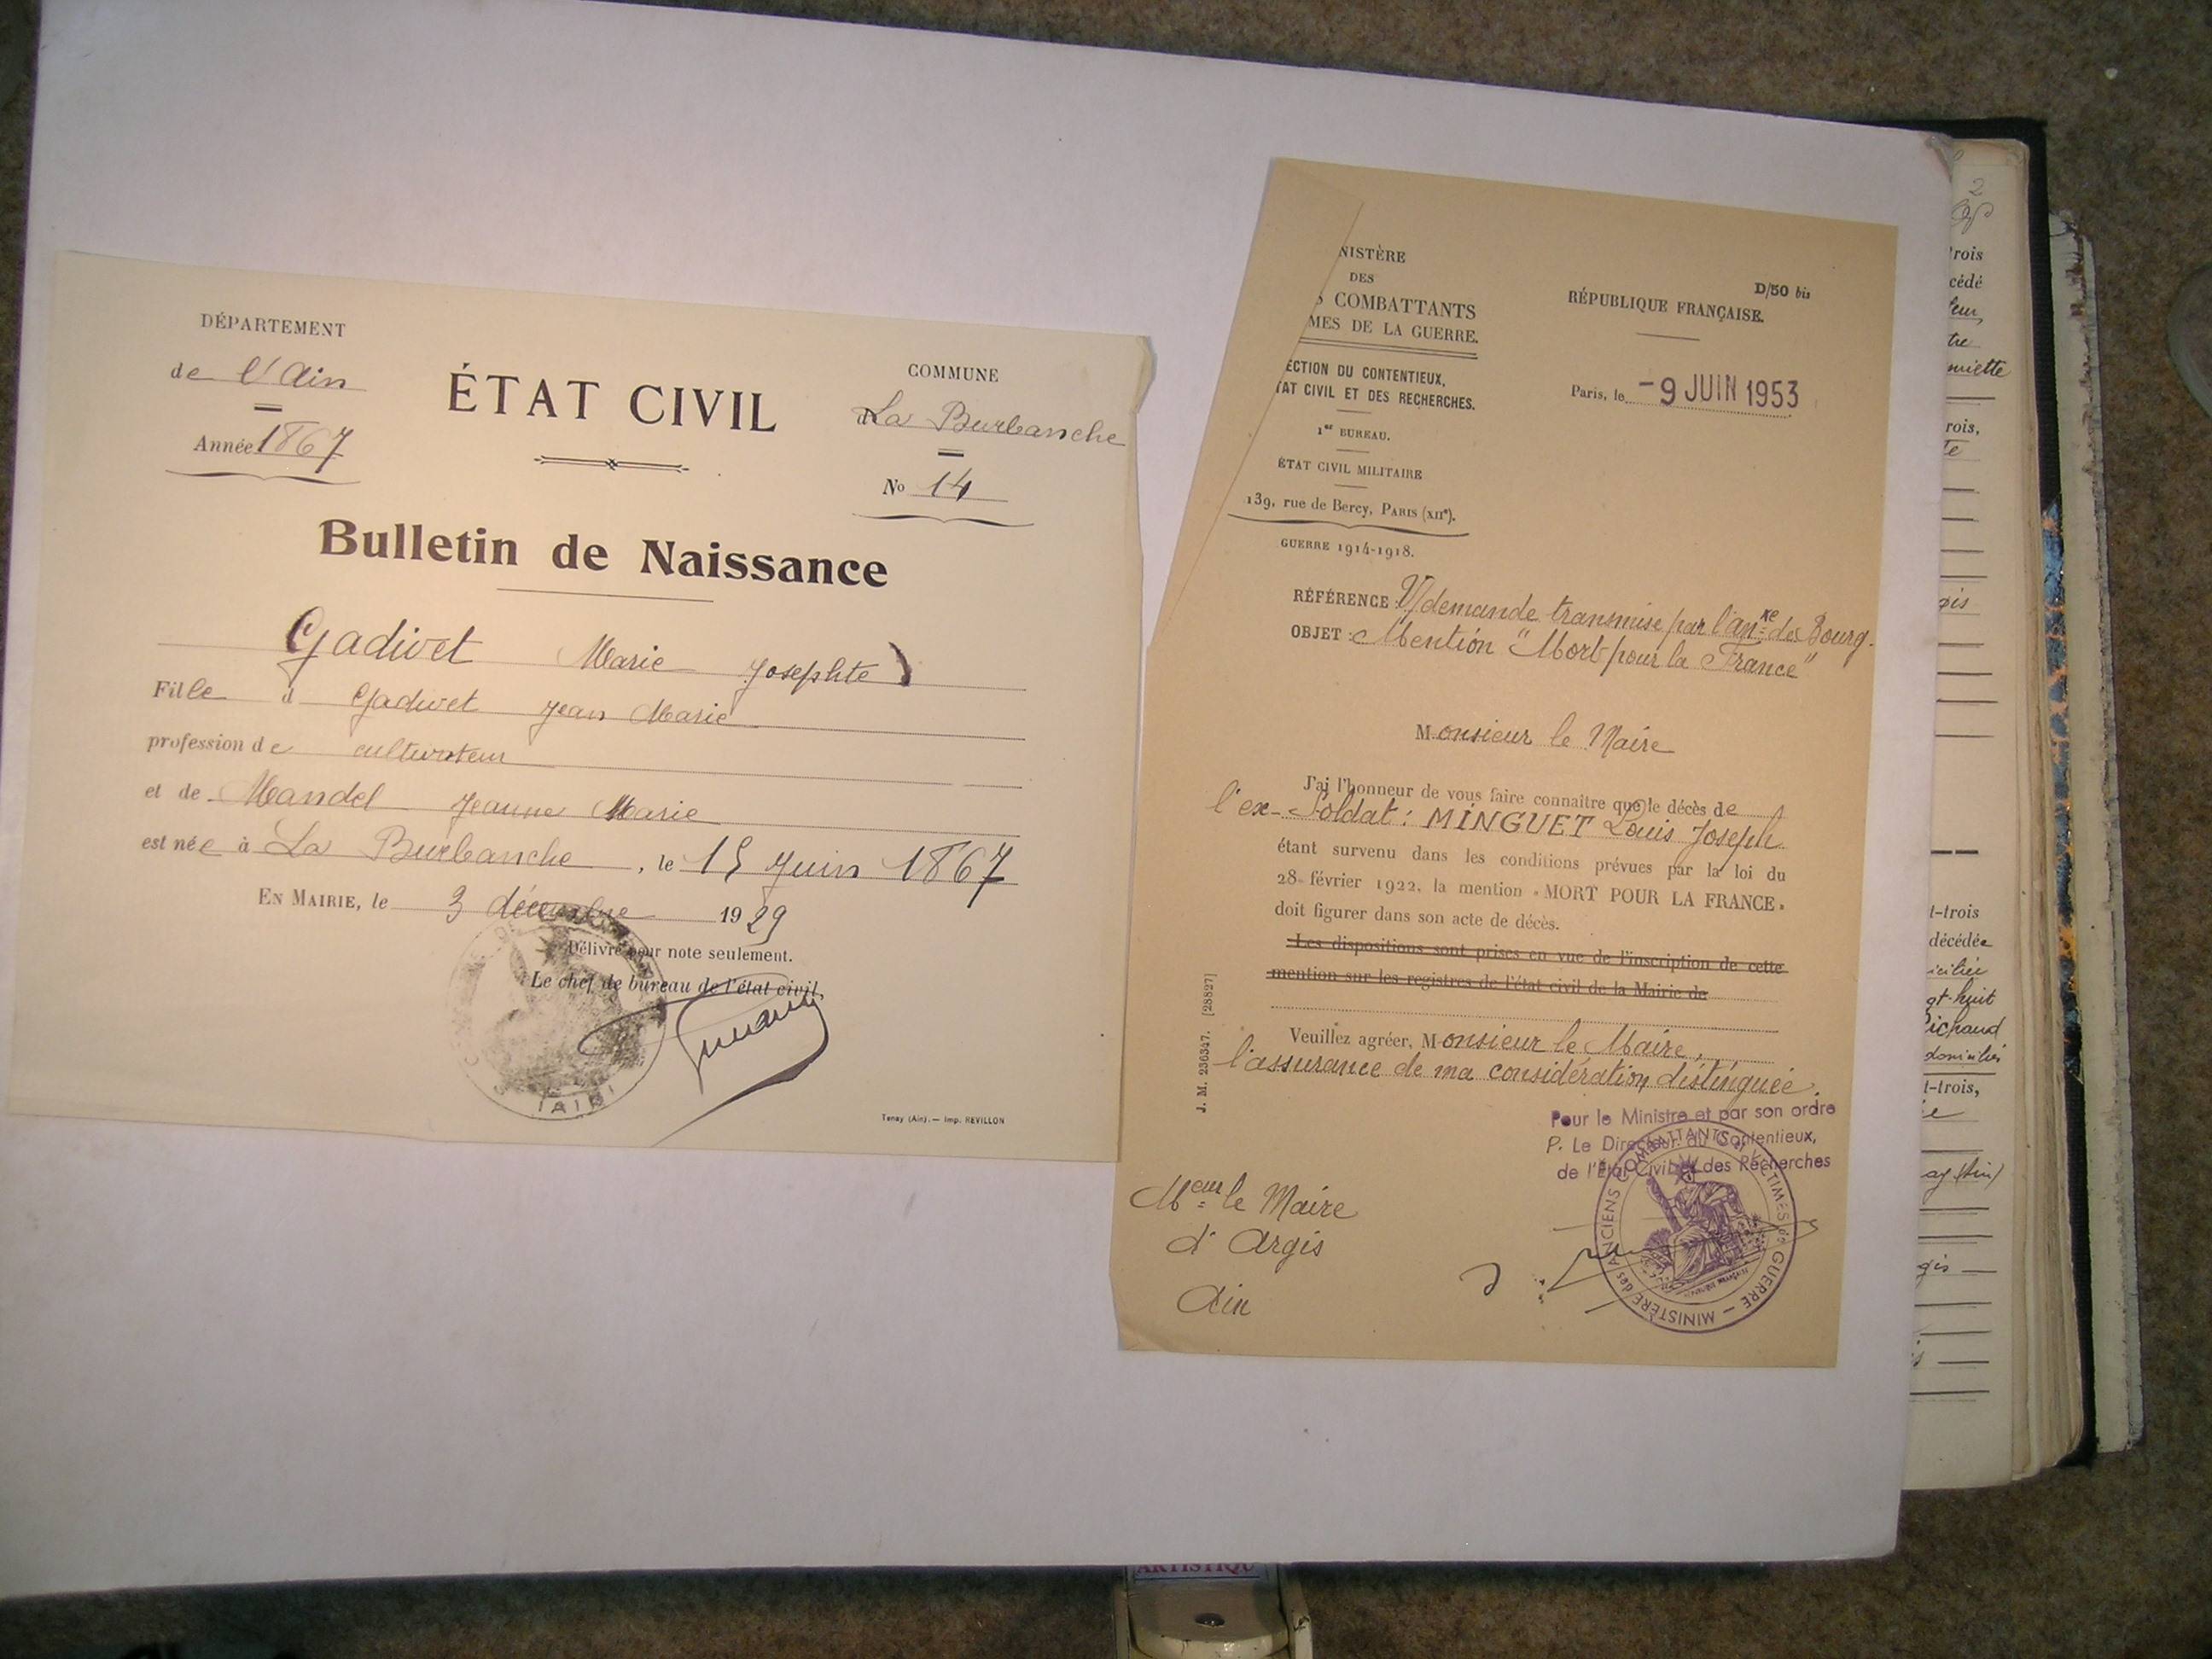 DÉPARTEMENT
de l'Ain
Année 1867
ÉTAT CIVIL
COMMUNE
La Burbanche
No 14
Bulletin de Naissance
Gadivet Marie Josephte
Fille d Gadivet Jean Marie
profession de cultivateur
et de Mandel Jeanne Marie
est née à La Burbanche, le 15 Juin 1867
EN MAIRIE, le 3 décembre 1929
Délivré pour note seulement.
Le chef de bureau de l'état civil,
Tenay (Ain). — Imp. REVILLON
NISTÈRE
DES
S COMBATTANTS
MES DE LA GUERRE.
ECTION DU CONTENTIEUX,
TAT CIVIL ET DES RECHERCHES.
1er BUREAU.
ÉTAT CIVIL MILITAIRE
139, rue de Bercy, PARIS (XIIe).
GUERRE 1914-1918.
D/50 bis
RÉPUBLIQUE FRANÇAISE.
Paris, le -9 JUIN 1953
RÉFÉRENCE : V/demande transmise par l'anxe des Bourg.
OBJET : Mention "Mort pour la France"
Monsieur le Maire
J'ai l'honneur de vous faire connaître que le décès de
l'ex-Soldat : MINGUET Louis Joseph
étant survenu dans les conditions prévues par la loi du
28 février 1922, la mention «MORT POUR LA FRANCE»
doit figurer dans son acte de décès.
Les dispositions sont prises en vue de l'inscription de cette
mention sur les registres de l'état civil de la Mairie de
Veuillez agréer, Monsieur le Maire,
l'assurance de ma considération distinguée.
J. M. 236347. [28827]
Pour le Ministre et par son ordre
P. Le Directeur du Contentieux,
de l'État Civil et des Recherches
MINISTÈRE des ANCIENS COMBATTANTS et VICTIMES de GUERRE
Meur le Maire
d'Argis
Ain
2
rois
cédé
teur,
tre
miette
rois,
te
gis
t-trois
décédée
icilié
gt-huit
Richaud
domiciliés
t-trois,
ay (Ain)
gis
ARTISTIQU